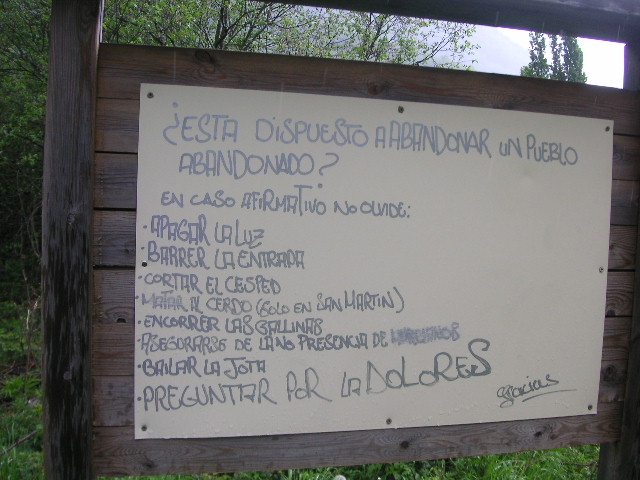 ¿ESTA DISPUESTO A ABANDONAR UN PUEBLO
ABANDONADO?
EN CASO AFIRMATIVO NO OLVIDE:
· APAGAR LA LUZ
· BARRER LA ENTRADA
· CORTAR EL CESPED
· MATAR AL CERDO (SOLO EN SAN MARTIN)
· ENCORRER LAS GALLINAS
· ASEGURARSE DE LA NO PRESENCIA DE
· BAILAR LA JOTA
· PREGUNTAR POR LA DOLORES
gracias